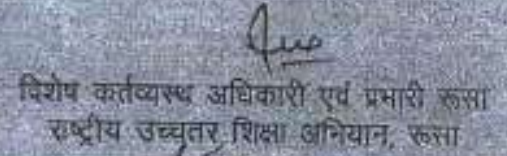 विशेष कर्तव्यस्थ अधिकारी एवं प्रभारी रूसा
राष्ट्रीय उच्चतर शिक्षा अभियान, रूसा